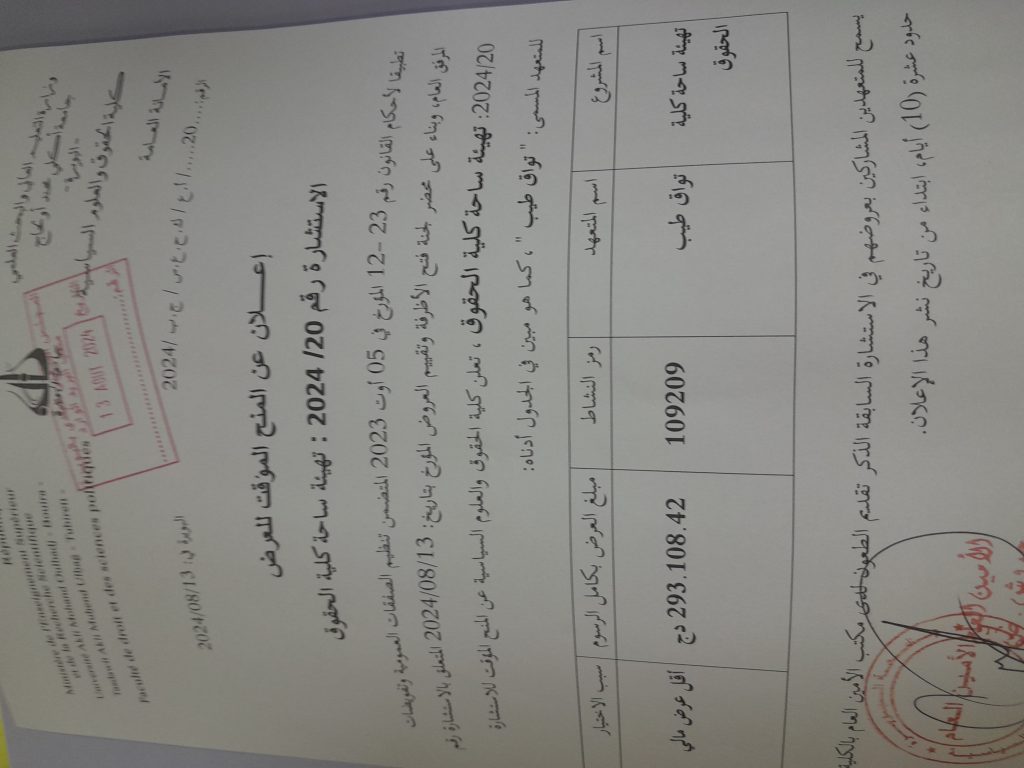 وزارة التعليم العالي والبحث العلمي
جامعة أكلي محند أولحاج
- البويرة -
كلية الحقوق والعلوم السياسية
الأمانة العامة
Ministère de l'Enseignement Supérieur
et de la Recherche Scientifique
Université Akli Mohand Oulhadj - Bouira -
Tasdawit Akli Muḥend Ulḥağ - Tubirett -
faculté de droit et des sciences politiques
13 AOUT 2024
الرقم:....20....../ا ع / ك.ح.ع.س / ج.ب /2024
البويرة في: 2024/08/13
إعـــلان عن المنح المؤقت للعرض
الاستشارة رقم 20/ 2024 : تهيئة ساحة كلية الحقوق
تطبيقا لأحكام القانون رقم 23 -12 المؤرخ في 05 اوت 2023 المتضمن تنظيم الصفقات العمومية وتفويضات
المرفق العام، وبناء على محضر لجنة فتح الأظرفة وتقييم العروض المؤرخ بتاريخ: 2024/08/13 المتعلق بالاستشارة رقم
2024/20: تهيئة ساحة كلية الحقوق ، تعلن كلية الحقوق والعلوم السياسية عن المنح المؤقت للاستشارة
للمتعهد المسمى: " تواق طيب " ، كما هو مبين في الجدول أدناه:
اسم المشروع اسم المتعهد رمز النشاط مبلغ العرض بكامل الرسوم سبب الاختيار
تهيئة ساحة كلية الحقوق تواق طيب 109209 293.108.42 دج أقل عرض مالي
يسمح للمتعهدين المشاركين بعروضهم في الاستشارة السابقة الذكر تقديم الطعون لدى مكتب الأمين العام بالكلية
حدود عشرة (10) أيام، ابتداء من تاريخ نشر هذا الإعلان.
الأمين العام